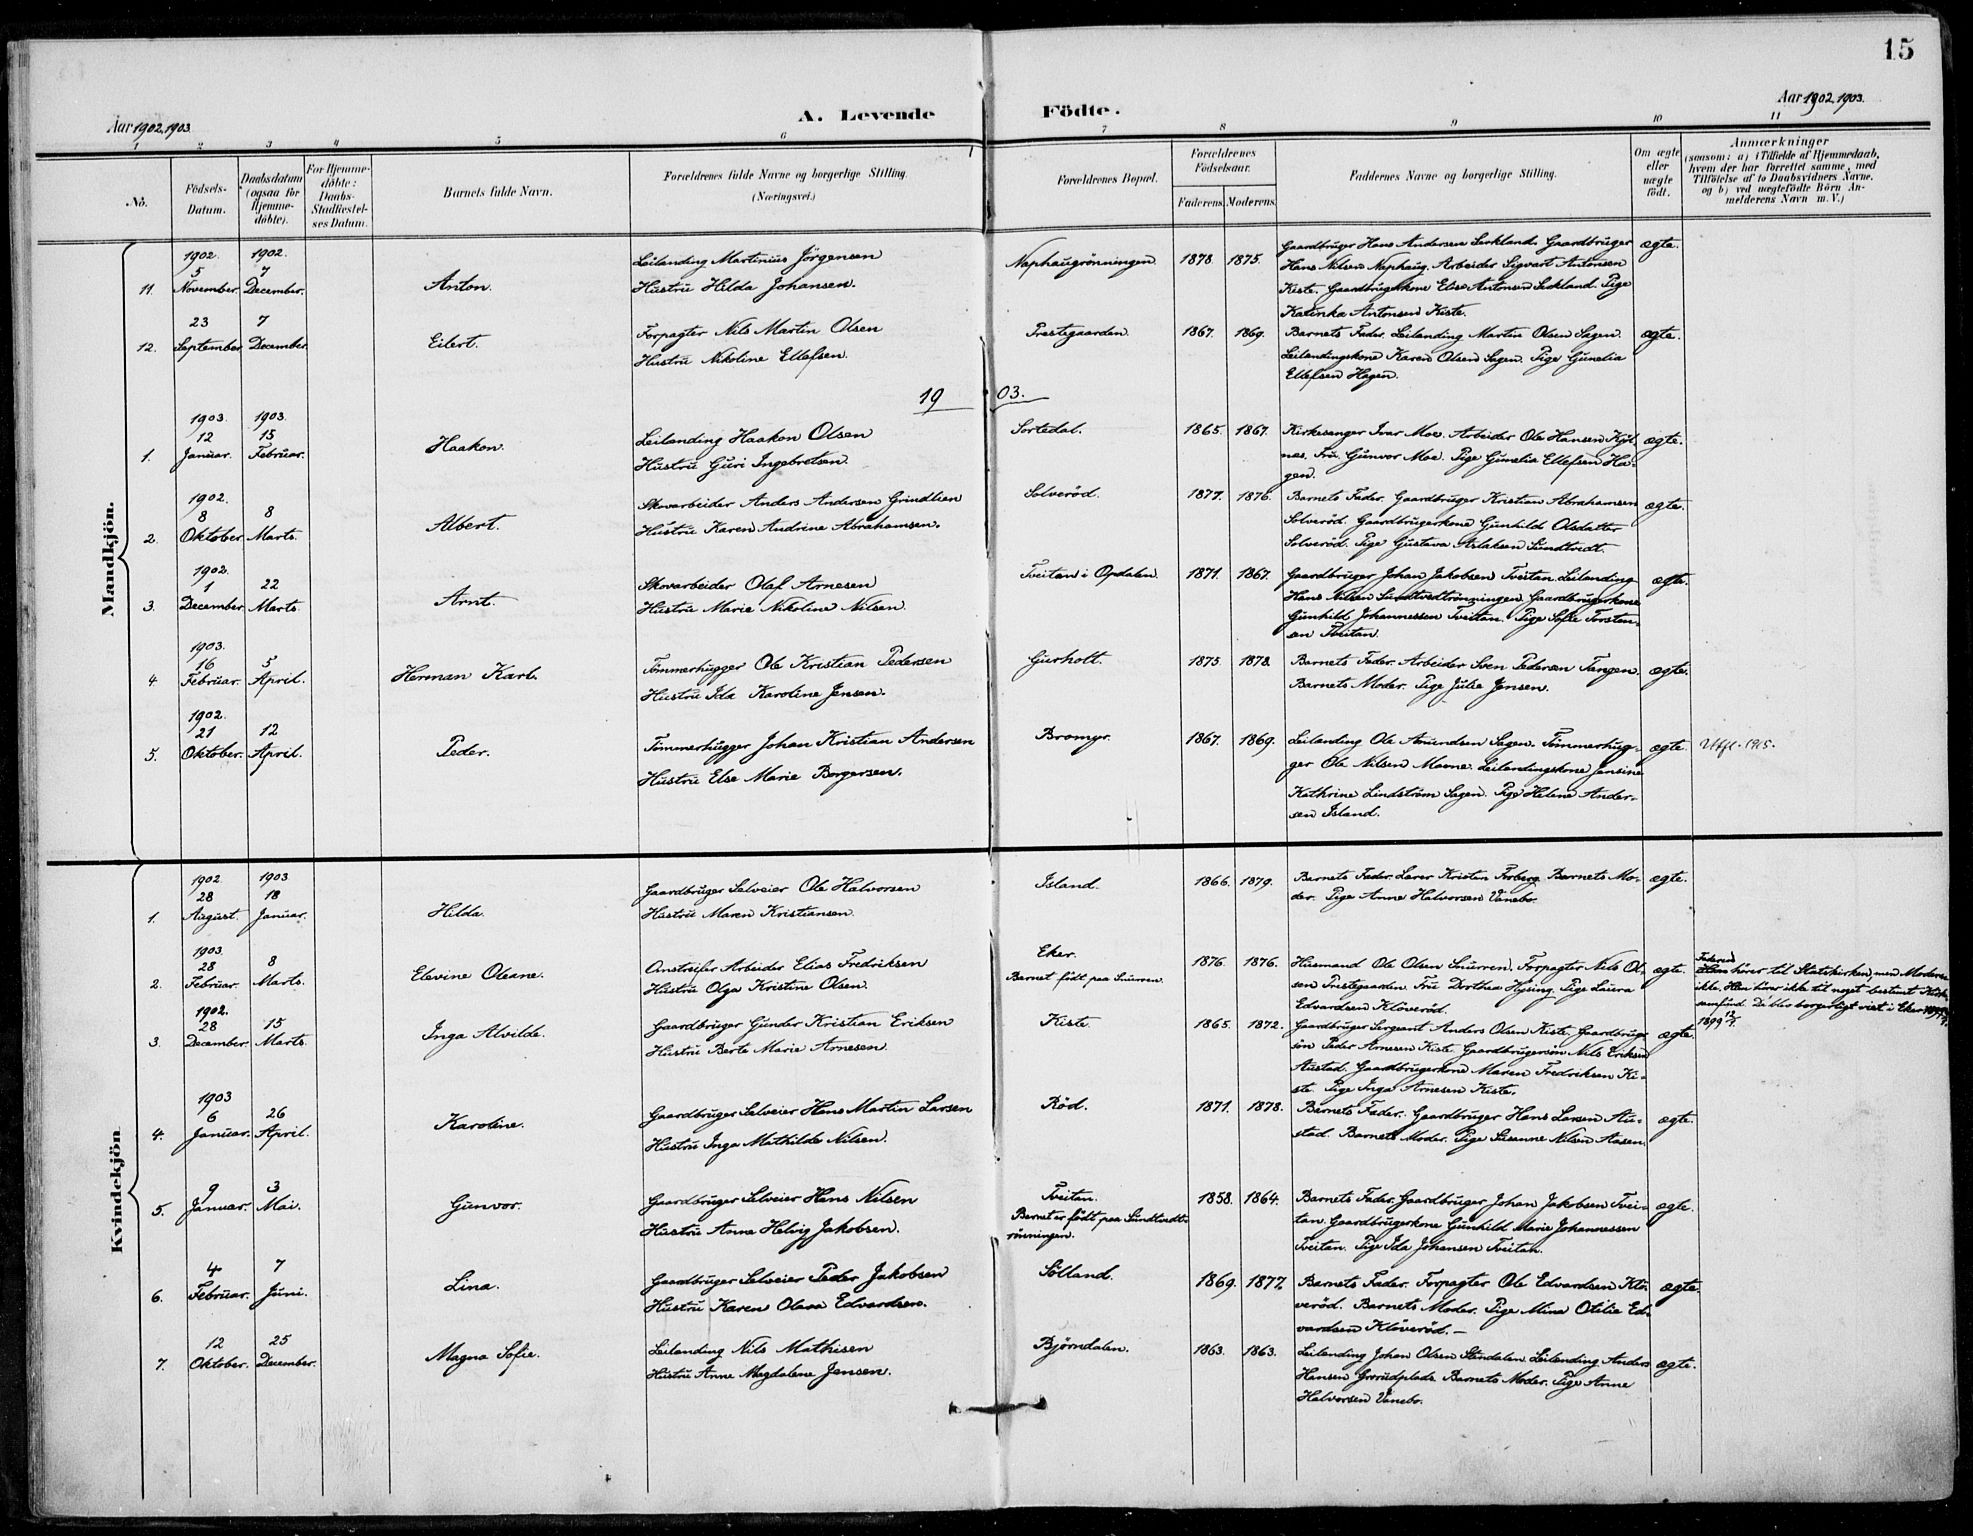 15
Aar 1902, 1903.
A. Levende Födte.
Aar 1902, 1903.
1 2 3 4 5 6 7 8 9 10 11
No.
Födsels-Datum.
Daabsdatum (ogsaa for Hjemme-döbte).
For Hjemme-döbte: Daabs-Stadfæstel-ses Datum.
Barnets fulde Navn.
Forældrenes fulde Navne og borgerlige Stilling. (Næringsvei.)
Forældrenes Bopæl.
Forældrenes Födselsaar.
Faderens. Moderens.
Faddernes Navne og borgerlige Stilling.
Om ægte eller uægte födt.
Anmærkninger
(saasom: a) i Tilfælde af Hjemmedaab,
hvem der har forrettet samme, med
Tilföielse af to Daabsvidners Navne,
og b) ved uægtefödte Börn An-
melderens Navn m. V.)
Mandkjön.
11. 1902. 5 November. 1902. 7 December. Anton.
Leilending Martinius Jörgensen
Hustru Hilda Johansen.
Naphaugrönningen 1878. 1875.
Gaardbruger Hans Andersen Serkland. Gaardbruger
Hans Nilsen Naphaug. Arbeider Sigvart Antonsen
Kiste. Gaardbrugerkone Elise Antonsen Serkland. Pige
Katinka Antonsen Kiste.
ægte.
12. 23 September 7 December. Eilert.
Forpagter Nils Martin Olsen
Hustru Nikoline Ellefsen.
Prestegaarden. 1867. 1869.
Barnets Fader. Leilending Martin Olsen Sagen.
Leilendingskone Karen Olsen Sagen. Pige Gunelia
Ellefsen Hagen.
ægte.
1903.
1. 1903. 12 Januar. 1903. 15 Februar. Haakon.
Leilending Haakon Olsen
Hustru Guri Ingebretsen.
Sortedal. 1865. 1867.
Kirkesanger Ivar Moe. Arbeider Ole Hansen Kjöl-
nes. Fru Gunvor Moe. Pige Gunelia Ellefsen Ha-
gen.
ægte.
2. 1902. 8 Oktober. 8 Marts. Albert.
Skovarbeider Anders Andersen Grindlien
Hustru Karen Andrine Abrahamsen.
Solveröd. 1877. 1876.
Barnets Fader. Gaardbruger Kristian Abrahamsen
Solveröd. Gaardbrugerkone Gunhild Olsdatter
Solveröd. Pige Gustava Aslaksen Sundtvedt.
ægte.
3. 1902. 1 December. 22 Marts. Arnt.
Skovarbeider Olaf Arnesen
Hustru Marie Nikoline Nilsen.
Tveitan i Opdalen. 1871. 1867.
Gaardbruger Johan Jakobsen Tveitan. Leilending
Hans Nilsen Sundtvedtrönningen. Gaardbrugerkone
Gunhild Johannessen Tveitan. Pige Sofie Torsten-
sen Tveitan.
ægte.
4. 1903. 16 Februar. 5 April. Herman Karl.
Tömmerhugger Ole Kristian Pedersen
Hustru Ida Karoline Jensen.
Gurholt. 1875. 1878.
Barnets Fader. Arbeider Sven Pedersen Tangen.
Barnets Moder. Pige Julie Jensen.
ægte.
5. 1902. 21 Oktober. 12 April. Peder.
Tömmerhugger Johan Kristian Andersen
Hustru Else Marie Borgersen.
Bromyr. 1867. 1869.
Leilending Ole Amundsen Sagen. Tömmerhug-
ger Ole Nilsen Moene. Leilendingskone Jensine
Kathrine Lindström Sagen. Pige Helene Ander-
sen Island.
ægte. Utfl. 1915.
Kvindekjön
1. 1902. 28 August. 1903. 18 Januar. Hilda.
Gaardbruger Selveier Ole Halvorsen
Hustru Maren Kristiansen.
Island. 1866. 1879.
Barnets Fader. Lærer Kristen Forberg. Barnets Mo-
der. Pige Anne Halvorsen Vanebo.
ægte.
2. 1903. 28 Februar. 8 Marts. Elevine Oleane.
Omstreifer Arbeider Elias Fredriksen
Hustru Olga Kristine Olsen.
Eker.
Barnet födt paa Snurren.
1876. 1876.
Husmand Ole Olsen Snurren. Forpagter Nils Ol-
sen Prestegaarden. Fru Dorthea Hysing. Pige Laura
Edvardsen Klöveröd.
ægte.
Faderen hörer til Statskirken, men Moderen
ikke. Hun hörer ikke til noget bestemt Kirke-
samfund. De blev borgerligt viet i Eker
1899
3. 1902. 28 December. 15 Marts. Inga Alvilde.
Gaardbruger Gunder Kristian Eriksen
Hustru Berte Marie Arnesen.
Kiste. 1865. 1872.
Gaardbruger Sergeant Anders Olsen Kiste. Gaardbruger-
sön Peder Arnesen Kiste. Gaardbrugersön Nils Eriksen
Austad. Gaardbrugerkone Maren Fredriksen Ki-
ste. Pige Inga Arnesen Kiste.
ægte.
4. 1903 6 Januar. 26 April. Karoline.
Gaardbruger Selveier Hans Martin Larsen
Hustru Inga Mathilde Nilsen.
Röd. 1871. 1878.
Barnets Fader. Gaardbruger Hans Larsen Au-
stad. Barnets Moder. Pige Susanne Nilsen Aasen.
ægte.
5. 9 Januar. 3 Mai. Gunvor.
Gaardbruger Selveier Hans Nilsen
Hustru Anne Helvig Jakobsen.
Tveitan.
Barnet er födt paa Sundtvedt-
rönningen.
1858. 1864.
Barnets Fader. Gaardbruger Johan Jakobsen Tvei-
tan. Gaardbrugerkone Gunhild Marie Johannessen
Tveitan. Pige Ida Johansen Tveitan.
ægte.
6. 4 Februar. 7 Juni. Lina.
Gaardbruger Selveier Peder Jakobsen
Hustru Karen Olava Edvardsen.
Sölland. 1869. 1877.
Barnets Fader. Forpagter Ole Edvardsen Klö-
veröd. Barnets Moder. Pige Mina Otilie Ed-
vardsen Klöveröd. —
ægte.
7. 12 Oktober. 25 December. Magna Sofie.
Leilending Nils Mathisen
Hustru Anne Magdalene Jensen.
Björndalen. 1863. 1863.
Leilending Johan Olsen Stendalen. Leilending Anders
Hansen Grorudplads. Barnets Moder. Pige Anne
Halvorsen Vanebo.
ægte.